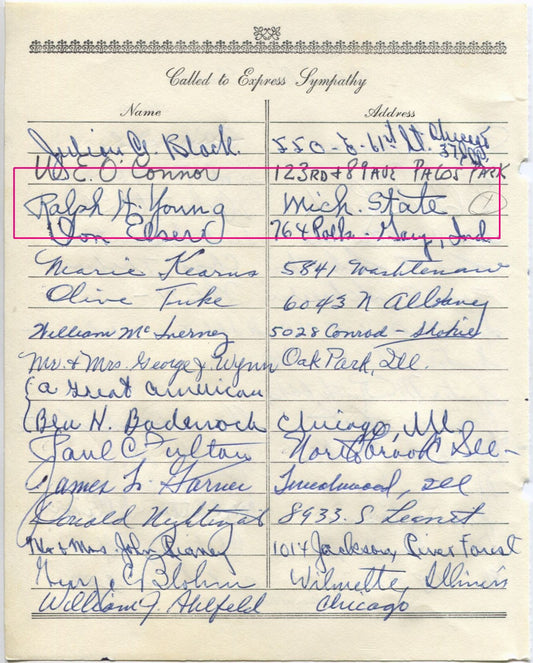 Called to Express Sympathy
Name Address
Julian G. Black. 550 - E - 61st St. Chicago 37
W. E. O. Connor 123RD & 89 AVE PALOS PARK
Ralph H. Young Mich. State 1
Von 764 Polk - Gary, Ind
Marie Kearns 5841 Washtenaw
Olive Tuke 6043 N Albany
William Mc Inerney 5028 Conrad - Skokie
Mr. & Mrs. George J. Wynn Oak Park, Ill.
(a great american
(Ben H. Badenoch Chicago, Ill.
Paul C Fulton Northbrook Ill -
James L. Garner Ill
Donald Nightingale 8933. S
Mr & Mrs. John Rigney 1014 Jackson, River Forest
C. Blohm Wilmette, Illinois
William J. Ahlfeld Chicago